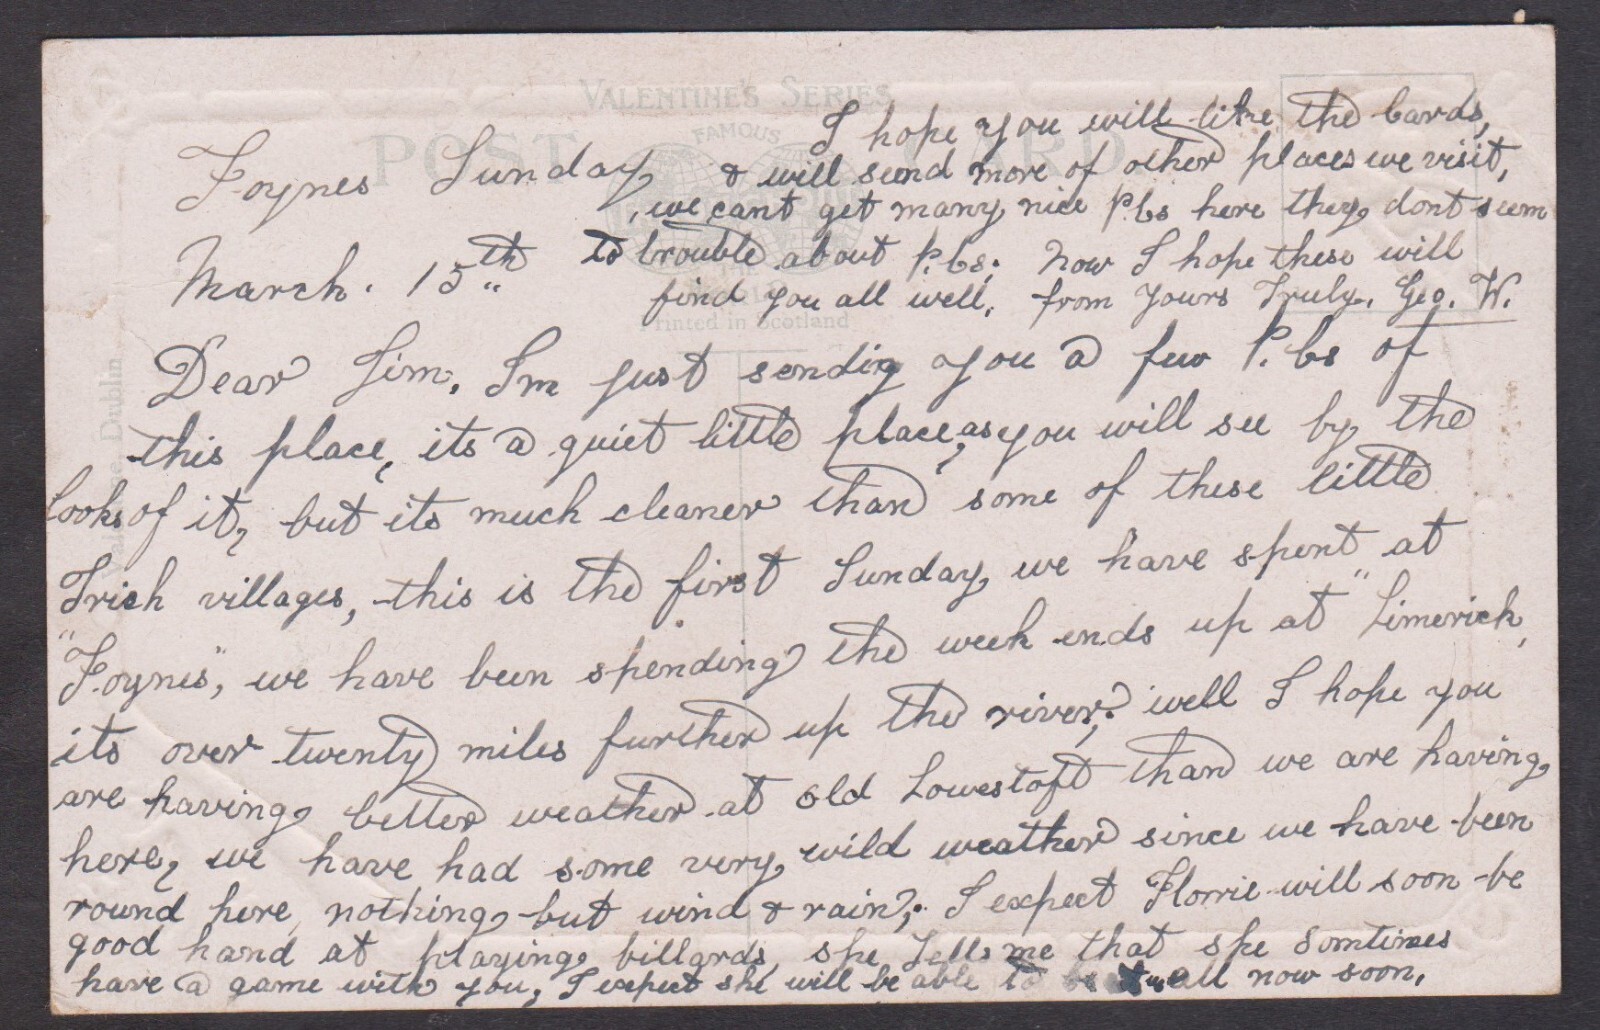 VALENTINE'S SERIES
POST CARD
FAMOUS
Printed in Scotland
Valentine Dublin
Foynes Sunday
March. 15th
Dear Jim, Im just sendig you a few P.Cs of
this place, its a quiet little place, as you will see by the
looks of it, but its much cleaner than some of these little
Irish villages, this is the first Sunday, we have spent at
"Foynes", we have been spending the week ends up at "Limerick,
its over twenty miles further up the river, well I hope you
are having better weather at old Lowestoft than we are having
here, we have had some very wild weather since we have been
round here, nothing but wind & rain, I expect Florrie will soon be
good hand at playing billards, she tells me that she somtimes
have a game with you, I expect she will be able to all now soon,
I hope you will like the Cards,
& will send more of other places we visit,
we cant get many nice P.Cs here they dont seem
to trouble about P.Cs. now I hope these will
find you all well, from Yours Truly. Geo. W.